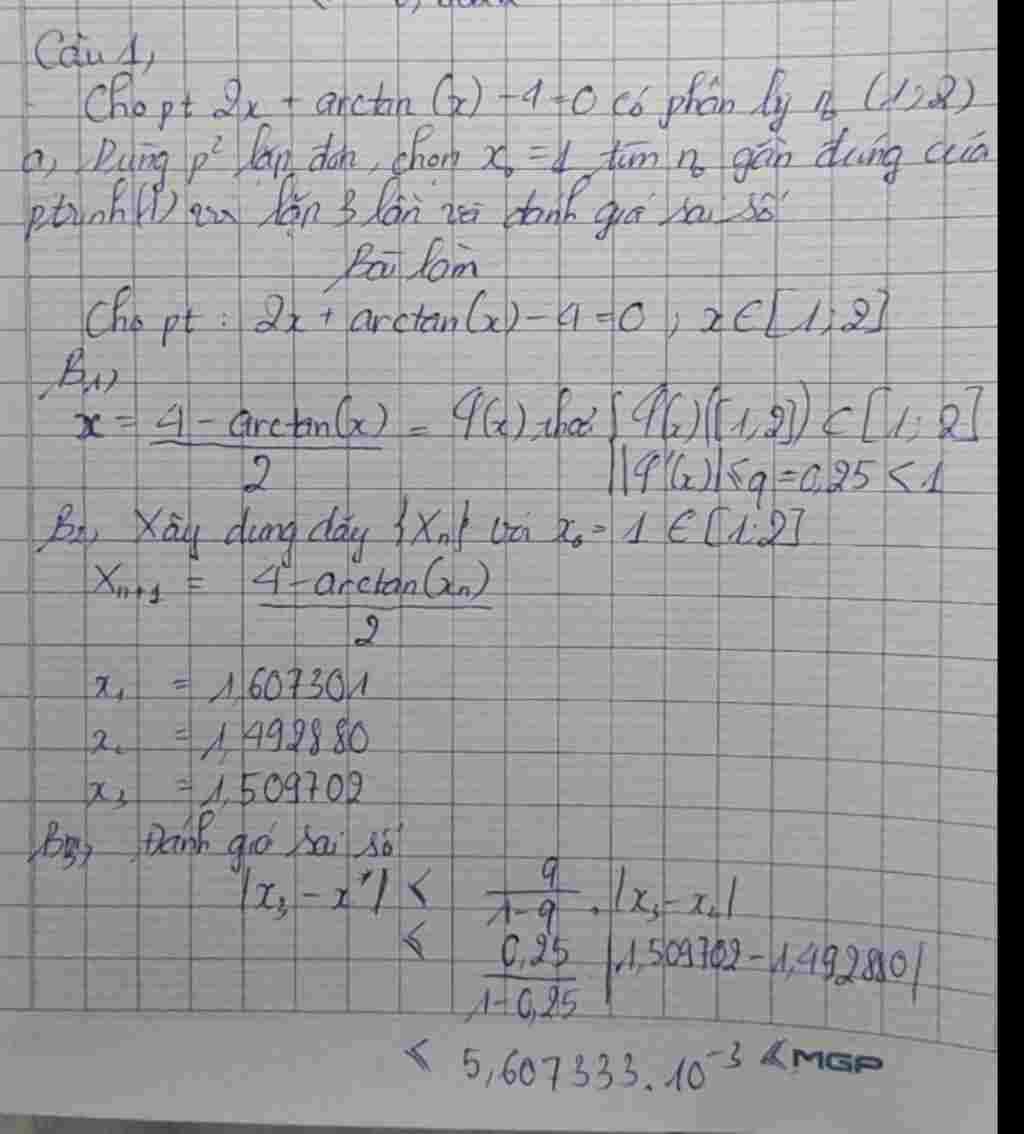 Câu 1,
Cho pt 2x + arctan (x) - 4 = 0 có phân ly n₀ (1;2)
a, Dùng p² lặp đơn, chọn x₀ = 1 tìm n₀ gần đúng của
ptrình (1) lặp 3 lần và đánh giá sai số
Bài làm
Cho pt : 2x + arctan(x) - 4 = 0 ; x ∈ [1;2]
B1,
x = (4 - arctan(x))/2 = φ(x) thoả { φ(x)([1,2]) ⊂ [1;2]
|φ'(x)| ≤ q = 0,25 < 1
B2, Xây dựng dãy {Xₙ} với x₀ = 1 ∈ [1;2]
Xₙ₊₁ = (4 - arctan(xₙ))/2
x₁ = 1,607301
x₂ = 1,492880
x₃ = 1,509702
B3, Đánh giá sai số
|x₃ - x*| ≤ q/(1-q) . |x₃ - x₂|
≤ 0,25/(1-0,25) |1,509702 - 1,492880|
≤ 5,607333.10⁻³
MGP